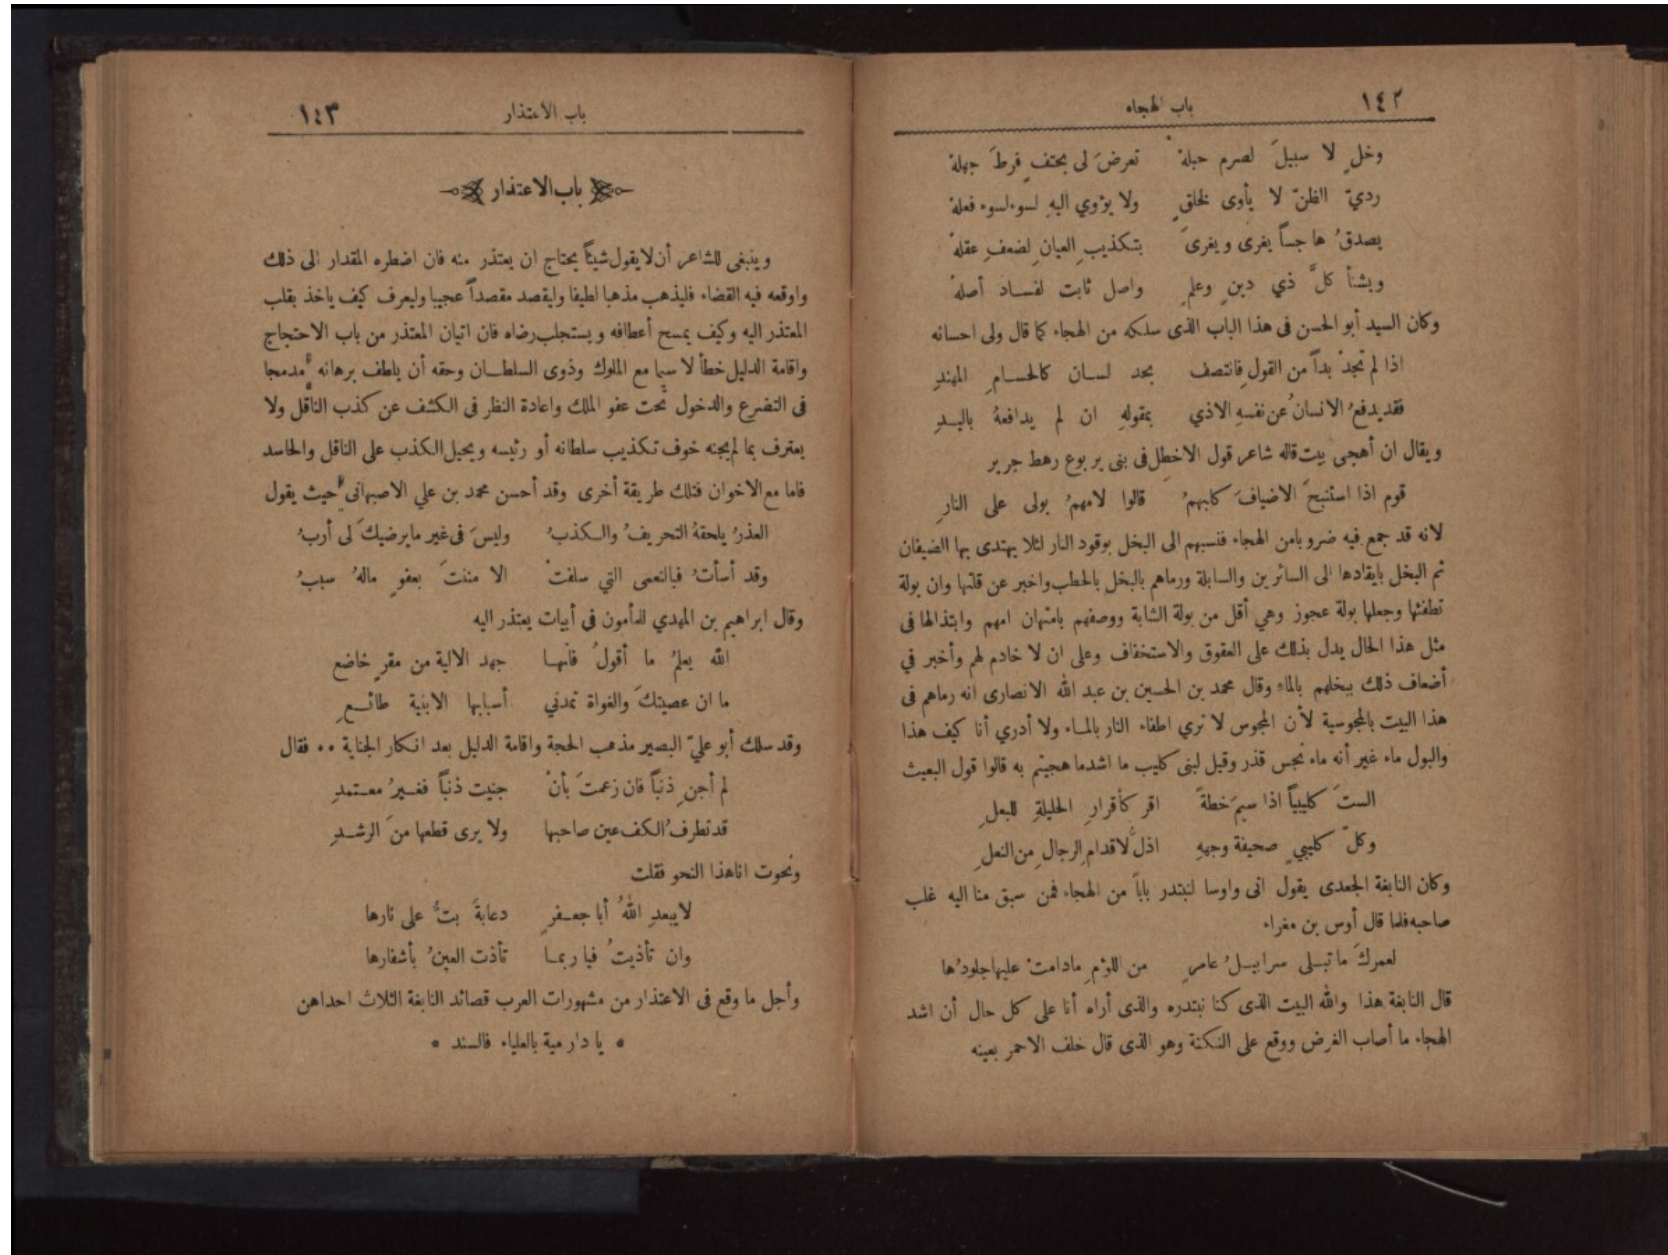 ١٤٢
باب الهجاء
وخلٍ لا سبيلَ لصرم حبلهْ تعرضَ لى بحتفٍ فرطَ جهلهْ
رديّ الظنّ لا يأوى لخلقٍ ولا يؤوي اليهِ لسوء لسوء فعلهْ
يصدقُ هاجساً يغرى ويغرىَ بتكذيبِ العيانِ لضعفِ عقلهْ
ويشنأ كلَّ ذي دينٍ وعلمٍ واصل ثابت لفساد أصلهْ
وكان السيد أبو الحسن فى هذا الباب الذى سلكه من الهجاء كما قال ولى احسانه
اذا لم تجدْ بداً من القولِ فانتصف بحد لسان كالحسامِ المهندِ
فقد يدفعُ الانسانُ عن نفسهِ الاذي بمقولهِ ان لم يدافعهُ باليدِ
ويقال ان أهجى بيت قاله شاعر قول الاخطل فى بنى يربوع رهط جرير
قوم اذا استنبحَ الاضيافَ كلبهمُ قالوا لامهمُ بولى على النارِ
لانه قد جمع فيه ضروبا من الهجاء فنسبهم الى البخل بوقود النار لئلا يهتدى بها الضيفان
ثم البخل بايقادها الى السائرين والسابلة ورماهم بالبخل بالحطب واخبر عن قلتها وان بولة
تطفئها وجعلها بولة عجوز وهي أقل من بولة الشابة ووصفهم بامتهان امهم وابتذالها فى
مثل هذا الحال يدل بذلك على العقوق والاستخفاف وعلى ان لا خادم لهم وأخبر في
أضعاف ذلك ببخلهم بالماء وقال محمد بن الحسين بن عبد الله الانصارى انه رماهم فى
هذا البيت بالمجوسية لأن المجوس لا تري اطفاء النار بالماء ولا أدري أنا كيف هذا
والبول ماء غير أنه ماء نجس قذر وقيل لبنى كليب ما اشد ما هجيتم به قالوا قول البعيث
الستَ كليبياً اذا سيمَ خطةً اقر كأقرارِ الحليلةِ للبعلِ
وكلّ كليبيٍ صحيفة وجههِ اذلّ لاقدامِ الرجالِ من النعلِ
وكان النابغة الجعدى يقول انى واوسا لنبتدر باباً من الهجاء فمن سبق منا اليه غلب
صاحبه فلما قال أوس بن مغراء
لعمركَ ما تبلى سرابيلُ عامرٍ من اللؤمِ مادامتْ عليها جلودُها
قال النابغة هذا والله البيت الذى كنا نبتدره والذى أراه أنا على كل حال أن اشد
الهجاء ما أصاب الغرض ووقع على النكتة وهو الذى قال خلف الاحمر بعينه
باب الاعتذار
١٤٣
باب الاعتذار
وينبغى للشاعر أن لا يقول شيئاً يحتاج ان يعتذر منه فان اضطره المقدار الى ذلك
واوقعه فيه القضاء فليذهب مذهبا لطيفا وليقصد مقصداً عجيبا وليعرف كيف ياخذ بقلب
المعتذر اليه وكيف يمسح أعطافه ويستجلب رضاه فان اتيان المعتذر من باب الاحتجاج
واقامة الدليل خطأ لا سيما مع الملوك وذوى السلطان وحقه أن يلطف برهانه مدمجا
فى التضرع والدخول تحت عفو الملك واعادة النظر فى الكشف عن كذب الناقل ولا
يعترف بما لم يجنه خوف تكذيب سلطانه أو رئيسه ويحيل الكذب على الناقل والحاسد
فاما مع الاخوان فتلك طريقة أخرى وقد أحسن محمد بن علي الاصبهانى حيث يقول
العذرُ يلحقهُ التحريفُ والكذبُ وليسَ فى غير ما يرضيكَ لى أربُ
وقد أسأتُ فبالنعمى التي سلفتْ الا مننتَ بعفوٍ مالهُ سببُ
وقال ابراهيم بن المهدي للمأمون في أبيات يعتذر اليه
الله يعلمُ ما أقولُ فانها جهد الالية من مقرٍ خاضع
ما ان عصيتكَ والغواة تمدني أسبابها الابنية طائعِ
وقد سلك أبو عليّ البصير مذهب الحجة واقامة الدليل بعد انكار الجناية .. فقال
لم أجنِ ذنباً فان زعمتَ بأنْ جنيت ذنباً فغيرُ معتمدِ
قد تطرفُ الكف عين صاحبها ولا يرى قطعها منَ الرشدِ
ونحوت انا هذا النحو فقلت
لا يبعدِ اللهُ أبا جعفرٍ دعابةَ بتُّ على نارها
وان تأذيتُ فيا ربما تأذت العينُ بأشفارها
وأجل ما وقع فى الاعتذار من مشهورات العرب قصائد النابغة الثلاث احداهن
* يا دار مية بالعلياء فالسند *